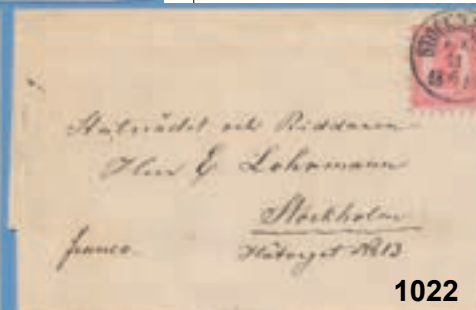 Statsrådet och Riddaren
Herr E Lohrmann
Stockholm
franco. No 13
1022